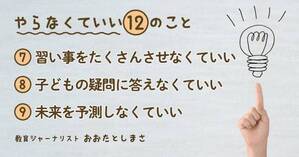 やらなくていい12のこと
⑦ 習い事をたくさんさせなくていい
⑧ 子どもの疑問に答えなくていい
⑨ 未来を予測しなくていい
教育ジャーナリスト おおたとしまさ